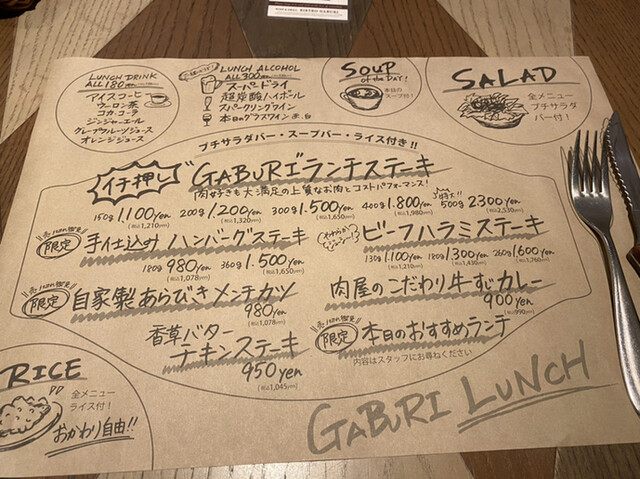 BISTRO GABURI
LUNCH DRINK
ALL 180yen
アイスコーヒー
ウーロン茶
コカ・コーラ
ジンジャーエール
グレープフルーツジュース
オレンジジュース
LUNCH ALCOHOL
ALL 300yen
スーパードライ
超炭酸ハイボール
スパークリングワイン
本日のグラスワイン 赤.白
SOUP
of the DAY!
本日の
スープ付!
SALAD
全メニュー
プチサラダ
バー付!
プチサラダバー・スープバー・ライス付き!!
イチ押し
"GABURI"ランチステーキ
肉好きも大満足の上質なお肉とコストパフォーマンス!
150g 1,100yen 200g 1,200yen 300g 1,500yen 400g 1,800yen 500g 2,300yen
(税込1,210yen) (税込1,320yen) (税込1,650yen) (税込1,980yen) (税込2,530yen)
限定
手仕込み ハンバーグステーキ
180g 980yen 360g 1,500yen
(税込1,078yen) (税込1,650yen)
ビーフハラミステーキ
130g 1,100yen 180g 1,300yen 260g 1,600yen
(税込1,210yen) (税込1,430yen) (税込1,760yen)
限定
自家製あらびきメンチカツ
980yen
(税込1,078yen)
肉屋のこだわり牛すじカレー
900yen
(税込990yen)
香草バター
チキンステーキ
950yen
(税込1,045yen)
限定
本日のおすすめランチ
内容はスタッフにお尋ねください
RICE
全メニュー
ライス付!
おかわり自由!!
GABURI LUNCH